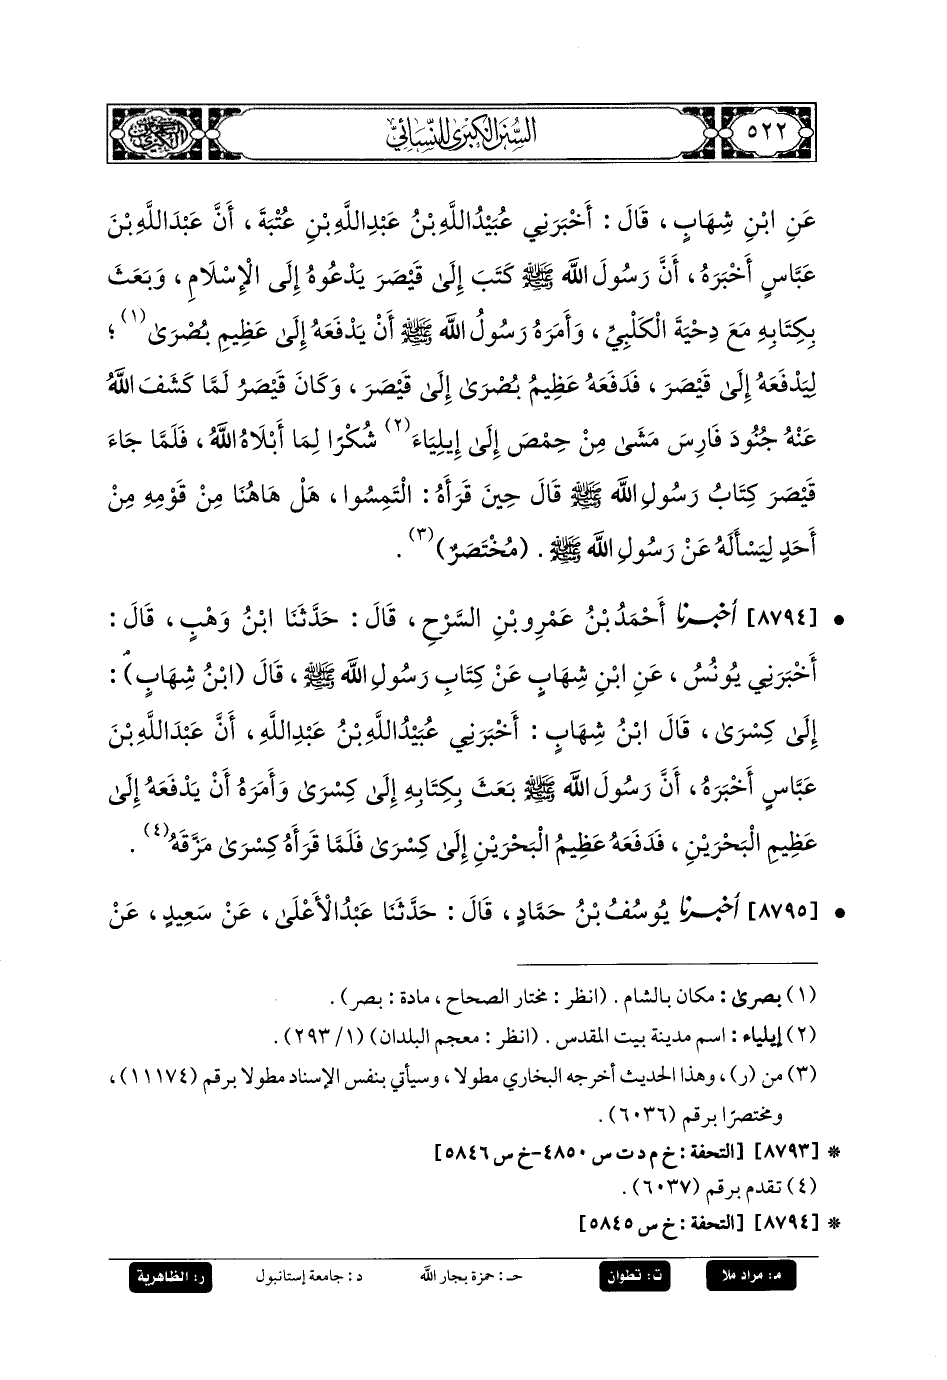 ٥٢٢
السنن الكبرى للنسائي
عَنِ ابْنِ شِهَابٍ، قَالَ : أَخْبَرَنِي عُبَيْدُاللَّهِ بْنُ عَبْدِاللَّهِ بْنِ عُتْبَةَ، أَنَّ عَبْدَاللَّهِ بْنَ
عَبَّاسٍ أَخْبَرَهُ، أَنَّ رَسُولَ اللَّه ﷺ كَتَبَ إِلَىٰ قَيْصَرَ يَدْعُوهُ إِلَى الْإِسْلَامِ، وَبَعَثَ
بِكِتَابِهِ مَعَ دِحْيَةَ الْكَلْبِيِّ، وَأَمَرَهُ رَسُولُ اللَّه ﷺ أَنْ يَدْفَعَهُ إِلَىٰ عَظِيمِ بُصْرَىٰ(١)؛
لِيَدْفَعَهُ إِلَىٰ قَيْصَرَ، فَدَفَعَهُ عَظِيمُ بُصْرَىٰ إِلَىٰ قَيْصَرَ، وَكَانَ قَيْصَرُ لَمَّا كَشَفَ اللَّهُ
عَنْهُ جُنُودَ فَارِسَ مَشَىٰ مِنْ حِمْصَ إِلَىٰ إِيلِيَاءَ(٢) شُكْرًا لِمَا أَبْلَاهُ اللَّهُ، فَلَمَّا جَاءَ
قَيْصَرَ كِتَابُ رَسُولِ اللَّه ﷺ قَالَ حِينَ قَرَأَهُ : الْتَمِسُوا، هَلْ هَاهُنَا مِنْ قَوْمِهِ مِنْ
أَحَدٍ لِيَسْأَلَهُ عَنْ رَسُولِ اللَّه ﷺ. (مُخْتَصَرٌ)(٣).
• [٨٧٩٤] أخبرنا أَحْمَدُ بْنُ عَمْرِو بْنِ السَّرْحِ، قَالَ : حَدَّثَنَا ابْنُ وَهْبٍ، قَالَ :
أَخْبَرَنِي يُونُسُ، عَنِ ابْنِ شِهَابٍ عَنْ كِتَابِ رَسُولِ اللَّه ﷺ، قَالَ (ابْنُ شِهَابٍ) :
إِلَىٰ كِسْرَىٰ، قَالَ ابْنُ شِهَابٍ : أَخْبَرَنِي عُبَيْدُاللَّهِ بْنُ عَبْدِاللَّهِ، أَنَّ عَبْدَاللَّهِ بْنَ
عَبَّاسٍ أَخْبَرَهُ، أَنَّ رَسُولَ اللَّه ﷺ بَعَثَ بِكِتَابِهِ إِلَىٰ كِسْرَىٰ وَأَمَرَهُ أَنْ يَدْفَعَهُ إِلَىٰ
عَظِيمِ الْبَحْرَيْنِ، فَدَفَعَهُ عَظِيمُ الْبَحْرَيْنِ إِلَىٰ كِسْرَىٰ فَلَمَّا قَرَأَهُ كِسْرَىٰ مَزَّقَهُ(٤).
• [٨٧٩٥] أخبرنا يُوسُفُ بْنُ حَمَّادٍ، قَالَ : حَدَّثَنَا عَبْدُالْأَعْلَىٰ، عَنْ سَعِيدٍ، عَنْ
(١) بصرىٰ : مكان بالشام. (انظر : مختار الصحاح، مادة : بصر).
(٢) إيلياء : اسم مدينة بيت المقدس. (انظر : معجم البلدان) (١/ ٢٩٣).
(٣) من (ر)، وهذا الحديث أخرجه البخاري مطولا، وسيأتي بنفس الإسناد مطولا برقم (١١١٧٤)،
ومختصرًا برقم (٦٠٣٦).
* [٨٧٩٣] [التحفة : خ م د ت س ٤٨٥٠-خ س ٥٨٤٦]
(٤) تقدم برقم (٦٠٣٧).
* [٨٧٩٤] [التحفة : خ س ٥٨٤٥]
م: مراد ملا ت: تطوان حـ: حمزة بجار الله د: جامعة إستانبول ر: الظاهرية